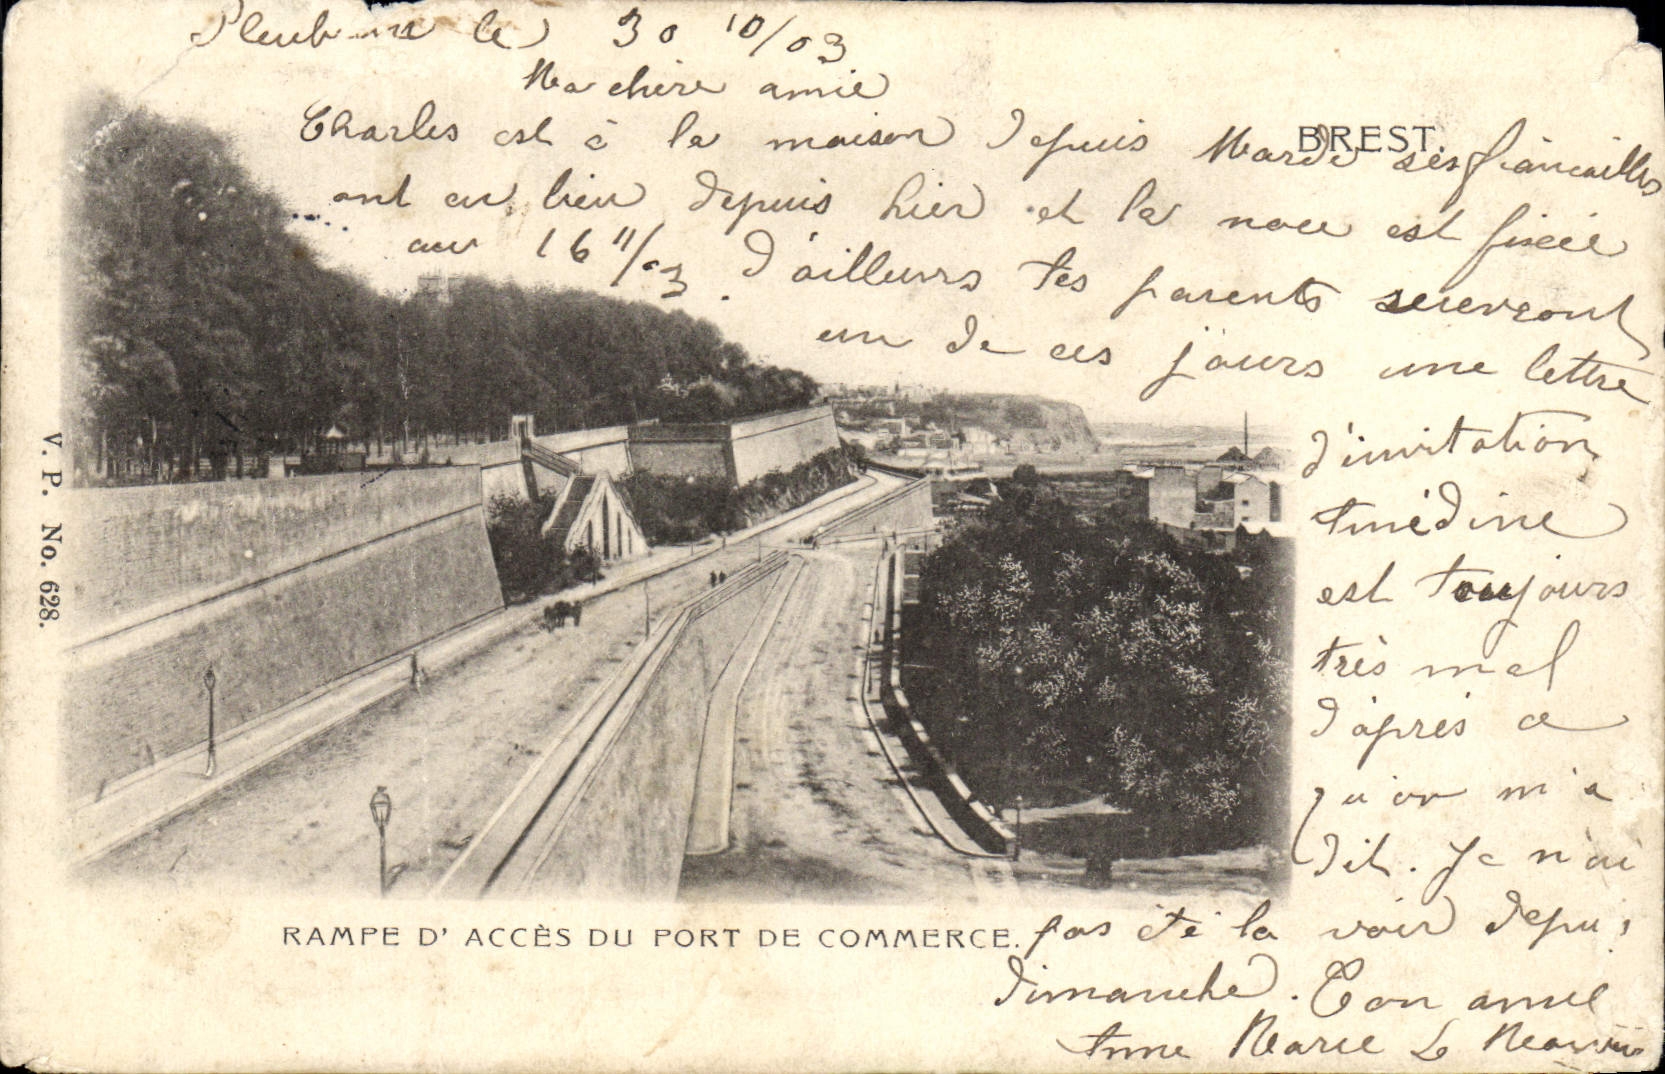 le 30 10/03
Ma chère amie
Charles est à la maison depuis Mardi ses fiançailles
ont eu lieu depuis hier et la noce est fixée
au 16 11/03. D'ailleurs tes parents recevront
un de ces jours une lettre
d'invitation
est toujours
très mal
d'après ce
qu'on m'a
dit. Je n'ai
pas été la voir depui
dimanche. Ton amie
Anne Marie Le
BREST.
V. P. No. 628.
RAMPE D' ACCÈS DU PORT DE COMMERCE.